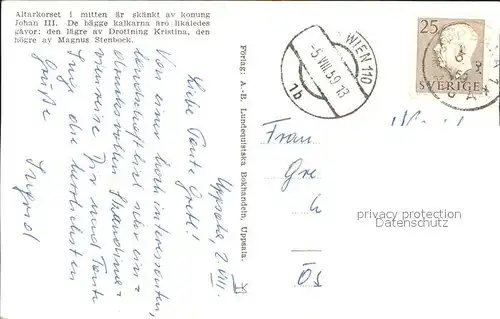 Altarkorset i mitten är skänkt av konung
Johan III. De bägge kalkarna äro likaledes
gåvor: den lägre av Drottning Kristina, den
högre av Magnus Stenbock.
Uppsala, 2. VIII.
Liebe Tante Gretl!
Von einer hoch interessanten,
landschaftlich sehr ein=
drucksvollen Skandina=
vienreise Dir und Tante
die herzlichsten
Grüße
Ingrid
Förlag: A.-B. Lundequistska Bokhandeln, Uppsala.
WIEN 110
-5. VIII. 59 13
1b
25
SVERIGE
Frau
Gre
privacy protection
Datenschutz
Ös